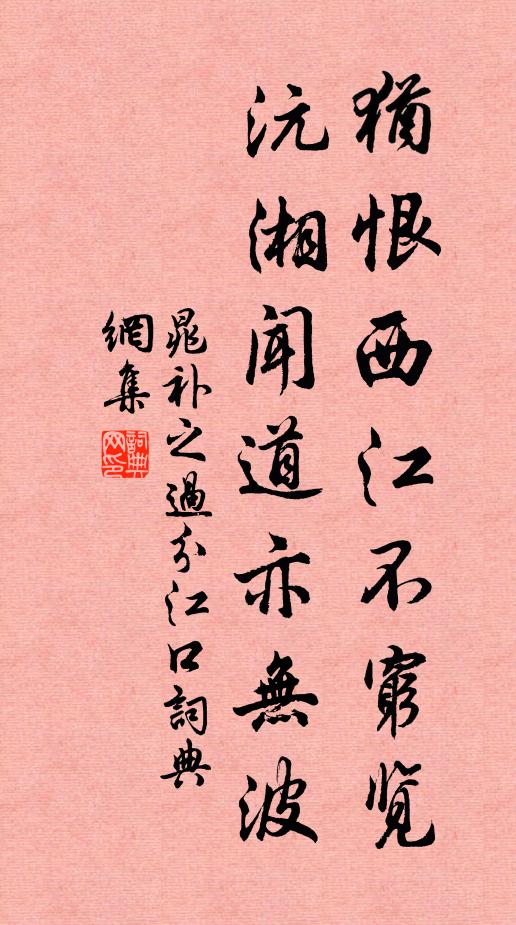 猶恨西江不窮覽
沅湘聞道亦無波
晁補之過分江口詞典
網集
詞典網印